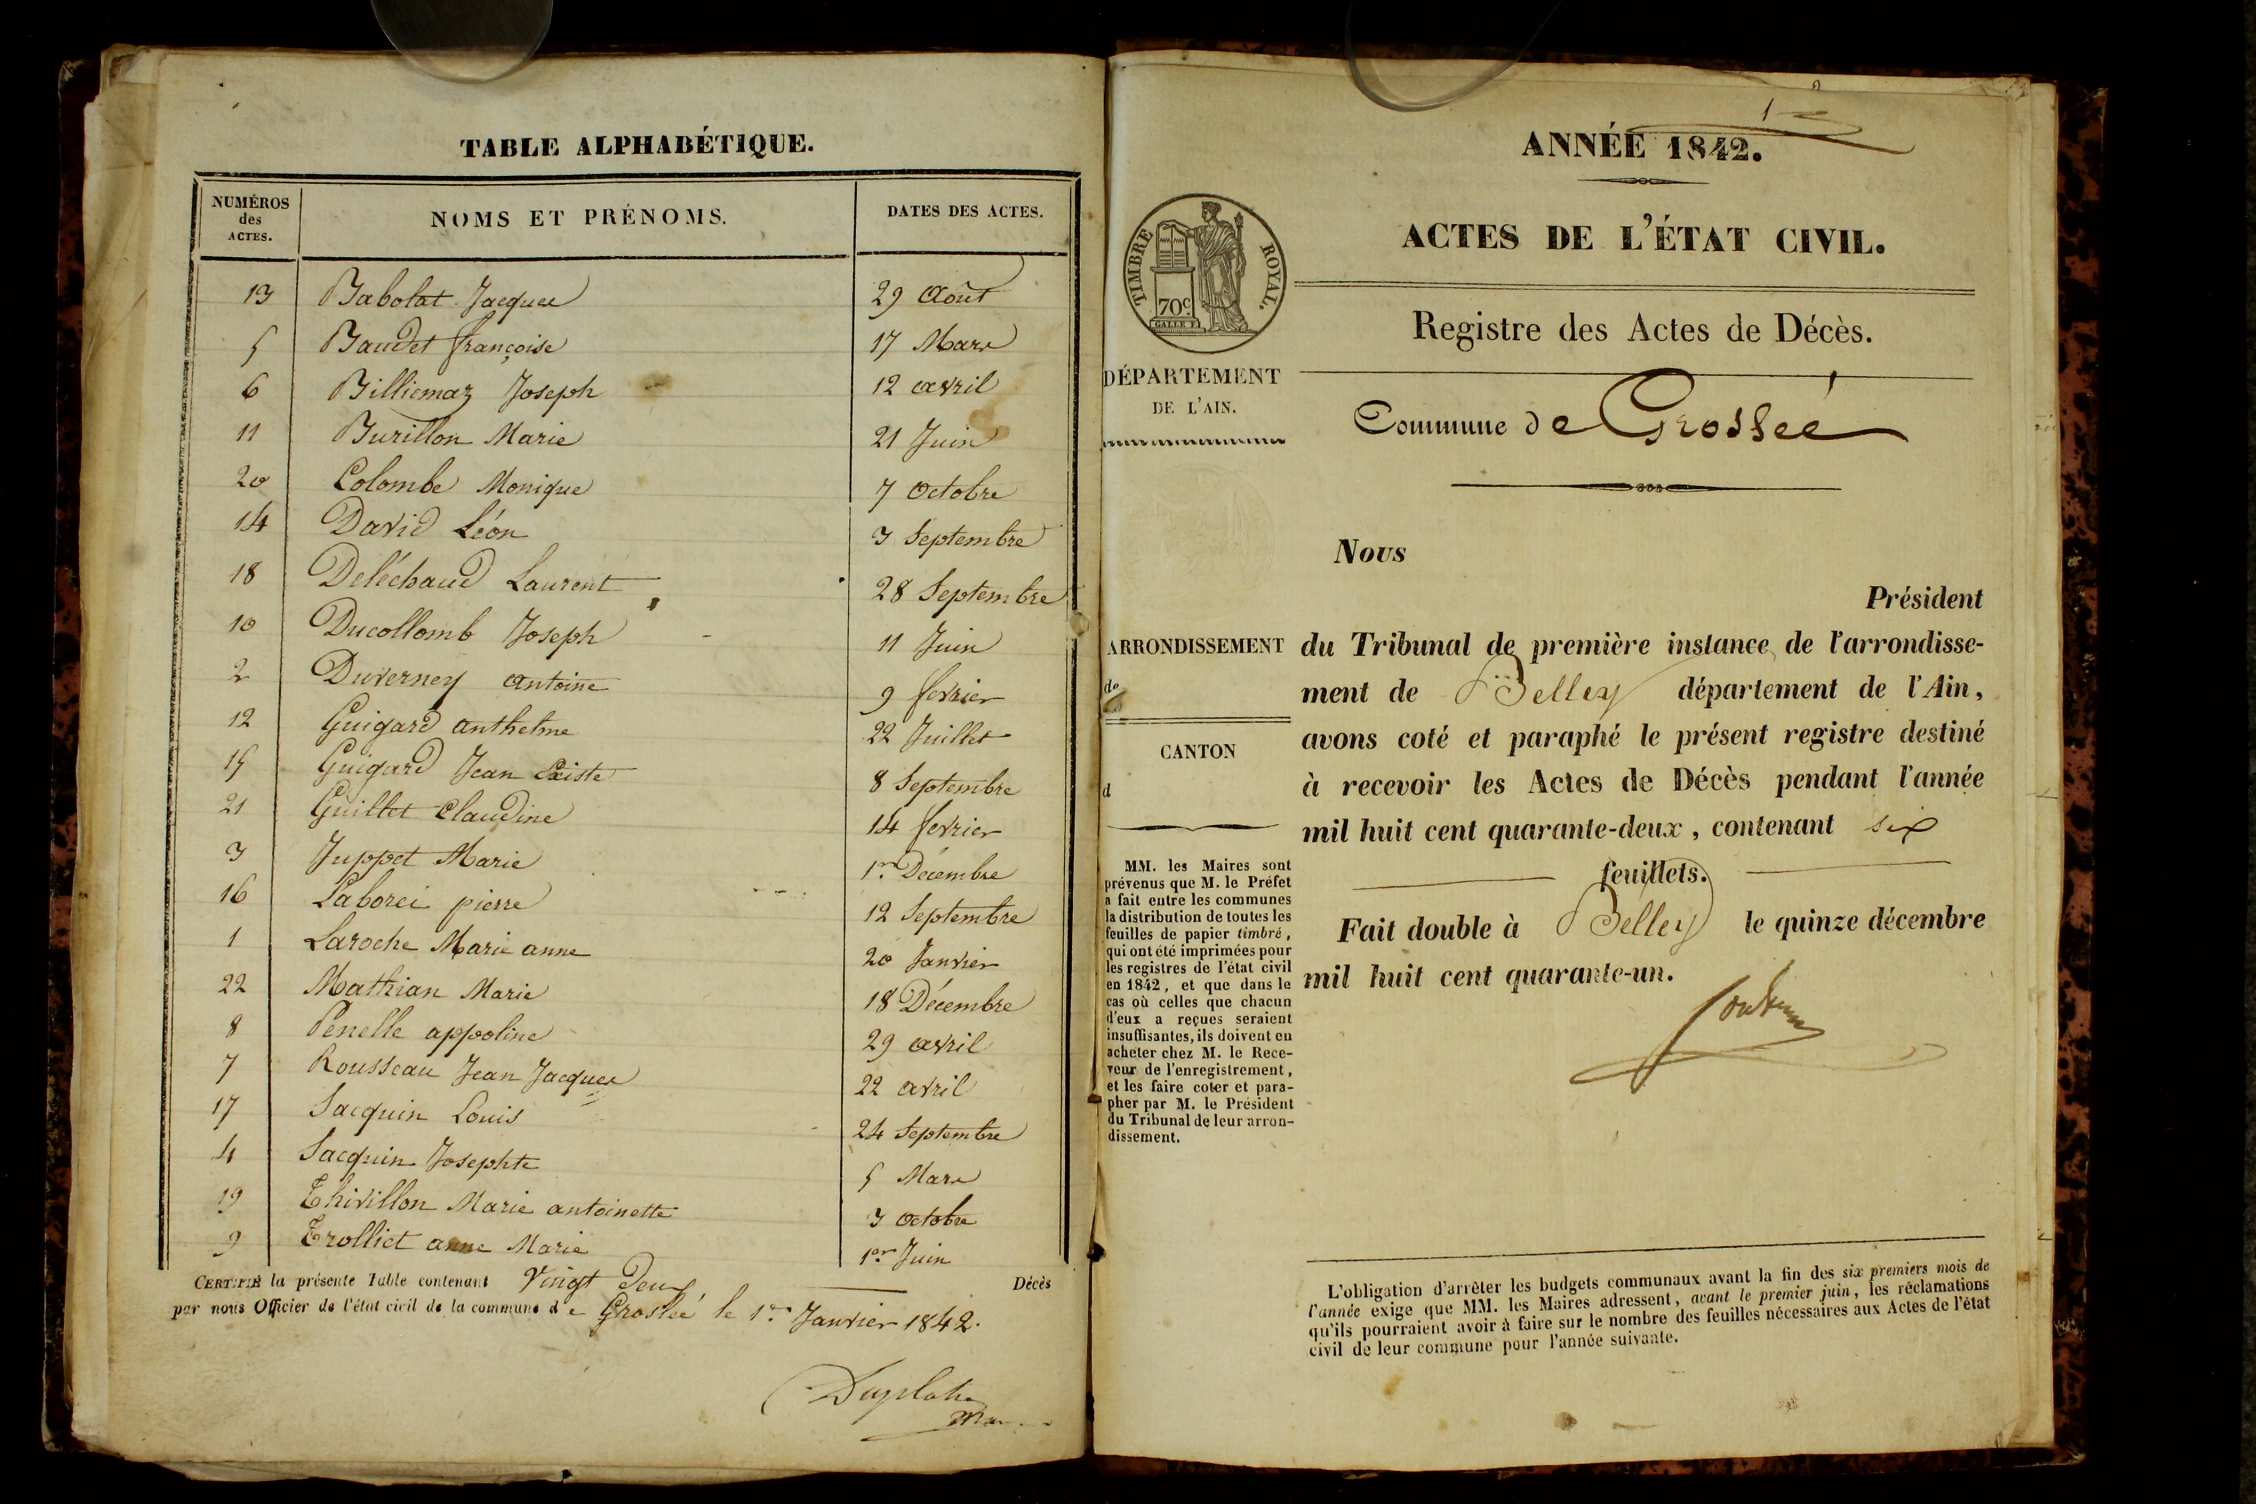 TABLE ALPHABÉTIQUE.
NUMÉROS des ACTES. NOMS ET PRÉNOMS. DATES DES ACTES.
13 Babolat Jacques 29 Août
5 Baudet françoise 17 Mars
6 Billiemaz Joseph 12 avril
11 Burillon Marie 21 Juin
20 Colombe Monique 7 Octobre
14 David Léon 3 Septembre
18 Deléchaud Laurent 28 Septembre
10 Ducollomb Joseph 11 Juin
2 Duverney antoine 9 fevrier
12 Guigard anthelme 22 Juillet
15 Guigard Jean 8 Septembre
21 Guillet Claudine 14 fevrier
3 Juppet Marie 1er Décembre
16 Laborei pierre 12 Septembre
1 Laroche Marie anne 20 Janvier
22 Mathian Marie 18 Décembre
8 Penelle appoline 29 avril
7 Rousseau Jean Jacques 22 avril
17 Sacquin Louis 24 Septembre
4 Sacquin Josephte 5 Mars
19 Thivillon Marie antoinette 3 octobre
9 Trolliet anne Marie 1er Juin
CERTIFIÉ la présente Table contenant Vingt Deux Décès
par nous Officier de l'état civil de la commune de Groslée le 1er Janvier 1842.
1
ANNÉE 1842.
ACTES DE L'ÉTAT CIVIL.
TIMBRE ROYAL.
70c
Registre des Actes de Décès.
DÉPARTEMENT
DE L'AIN.
Commune de Groslée
Nous
Président
ARRONDISSEMENT
de
CANTON
d
du Tribunal de première instance de l'arrondisse-
ment de Belley département de l'Ain,
avons coté et paraphé le présent registre destiné
à recevoir les Actes de Décès pendant l'année
mil huit cent quarante-deux, contenant six
feuillets.
Fait double à Belley le quinze décembre
mil huit cent quarante-un.
MM. les Maires sont
prévenus que M. le Préfet
a fait entre les communes
la distribution de toutes les
feuilles de papier timbré,
qui ont été imprimées pour
les registres de l'état civil
en 1842, et que dans le
cas où celles que chacun
d'eux a reçues seraient
insuffisantes, ils doivent en
acheter chez M. le Rece-
veur de l'enregistrement,
et les faire coter et para-
pher par M. le Président
du Tribunal de leur arron-
dissement.
L'obligation d'arrêter les budgets communaux avant la fin des six premiers mois de
l'année exige que MM. les Maires adressent, avant le premier juin, les réclamations
qu'ils pourraient avoir à faire sur le nombre des feuilles nécessaires aux Actes de l'état
civil de leur commune pour l'année suivante.